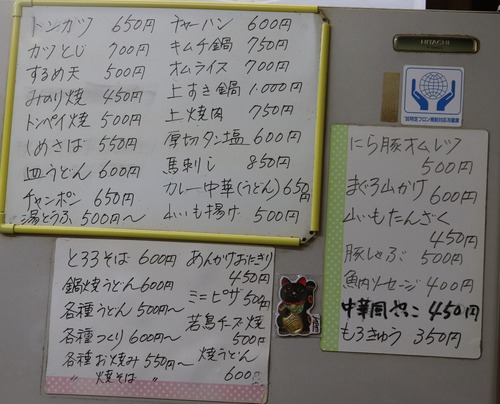 トンカツ 650円
カツとじ 700円
するめ天 500円
みのり焼 450円
トンペイ焼 500円
しめさば 550円
皿うどん 600円
チャンポン 650円
湯とうふ 500円〜
チャーハン 600円
キムチ鍋 750円
オムライス 700円
上すき鍋 1,000円
上焼肉 750円
厚切タン塩 600円
馬刺し 850円
カレー中華(うどん) 650円
山いも揚げ 500円
とろろそば 600円
鍋焼うどん 600円
各種うどん 500円〜
各種つくり 600円〜
各種お焼み 550円〜
〃 焼そば 〃
あんかけおにぎり
450円
ミニピザ 500円
若鳥チーズ焼
500円
焼うどん
600円
HITACHI
にら豚オムレツ
500円
まぐろ山かけ
600円
山いもたんざく
450円
豚しゃぶ 500円
魚肉ソーセージ 400円
中華風やっこ 450円
もろきゅう 350円